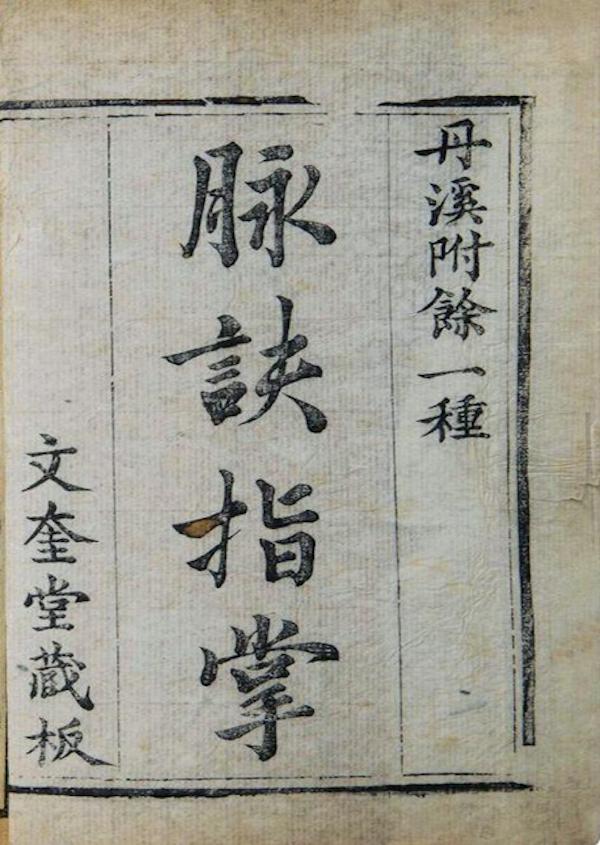 丹溪附餘一種
脉訣指掌
文奎堂蔵板